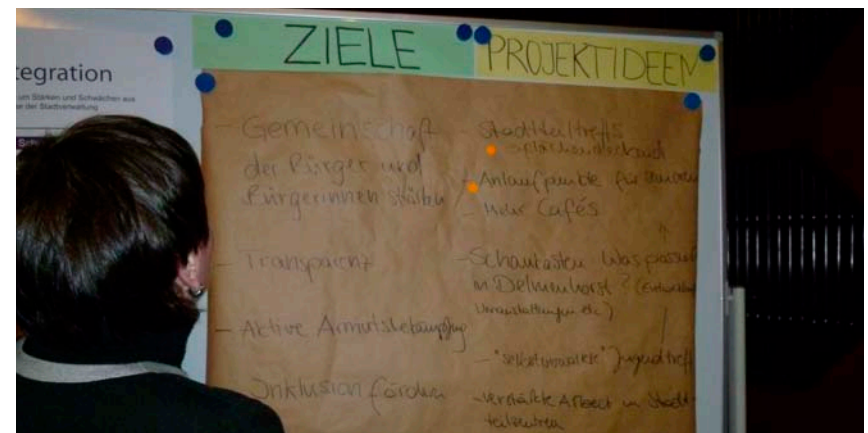 tegration
um Stärken und Schwächen aus
der Stadtverwaltung
ZIELE
- Gemeinschaft
der Bürger und
Bürgerinnen stärken
- Transparenz
- Aktive Armutsbekämpfung
- Inklusion fördern
PROJEKTIDEEN
- Stadtteiltreffs
- Anlaufpunkte für
- Mehr Cafés
- Schaukasten Was passiert
in Delmenhorst? (
Veranstaltungen etc.)
- "selbstverwaltete" Jugendtreff
- verstärkte Arbeit in Stadt-
teilzentren